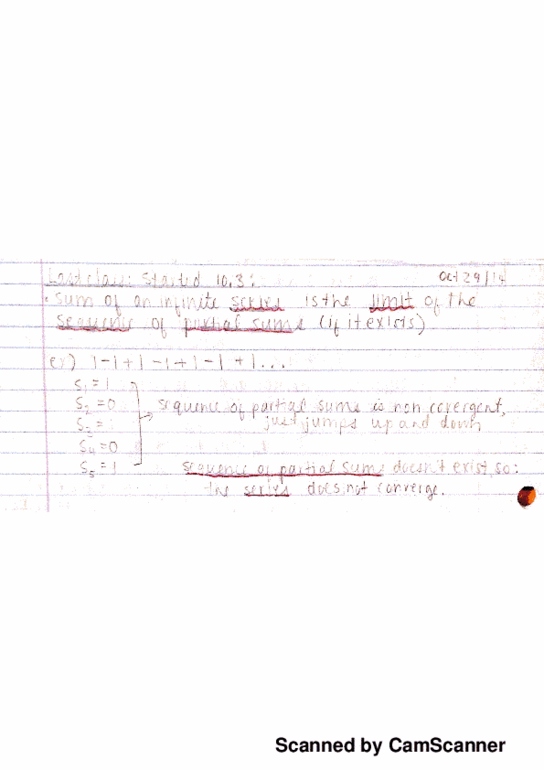 Last class: Started 10.3: Oct 29/14
• Sum of an infinite series is the limit of the
sequence of partial sums (if it exists)
ex) 1-1+1-1+1-1+1...
S₁ = 1
S₂ = 0 sequence of partial sums is non covergent,
S₃ = 1 just jumps up and down
S₄ = 0
S₅ = 1 sequence of partial sums doesn't exist, so:
the series does not converge.
Scanned by CamScanner